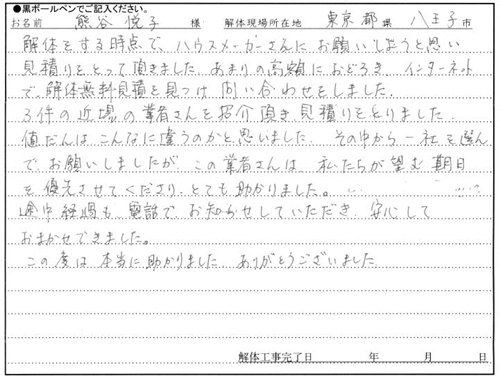 ●黒ボールペンでご記入ください。
お名前 熊谷 悦子 様 解体現場所在地 東京 都 県 八王子 市
解体をする時点で、ハウスメーカーさんにお願いしようと思い
見積りをとって頂きました あまりの高額におどろき インターネット
で、解体無料見積を見つけ 問い合わせをしました。
3件の近場の業者さんを紹介頂き 見積りをとりました
値だんはこんなに違うのかと思いました。 その中から一社を選ん
で お願いしましたが この業者さんは 私たちが望む期日
を優先させてくださり、とても助かりました。
途中経過も 電話で お知らせしていただき 安心して
おまかせできました。
この度は 本当に助かりました ありがとうございました
解体工事完了日 年 月 日